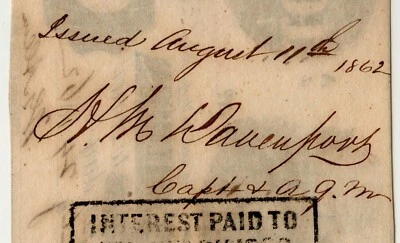 Issued August 11th
1862
H. M. Davenport
Capt & A.Q.M
INTEREST PAID TO